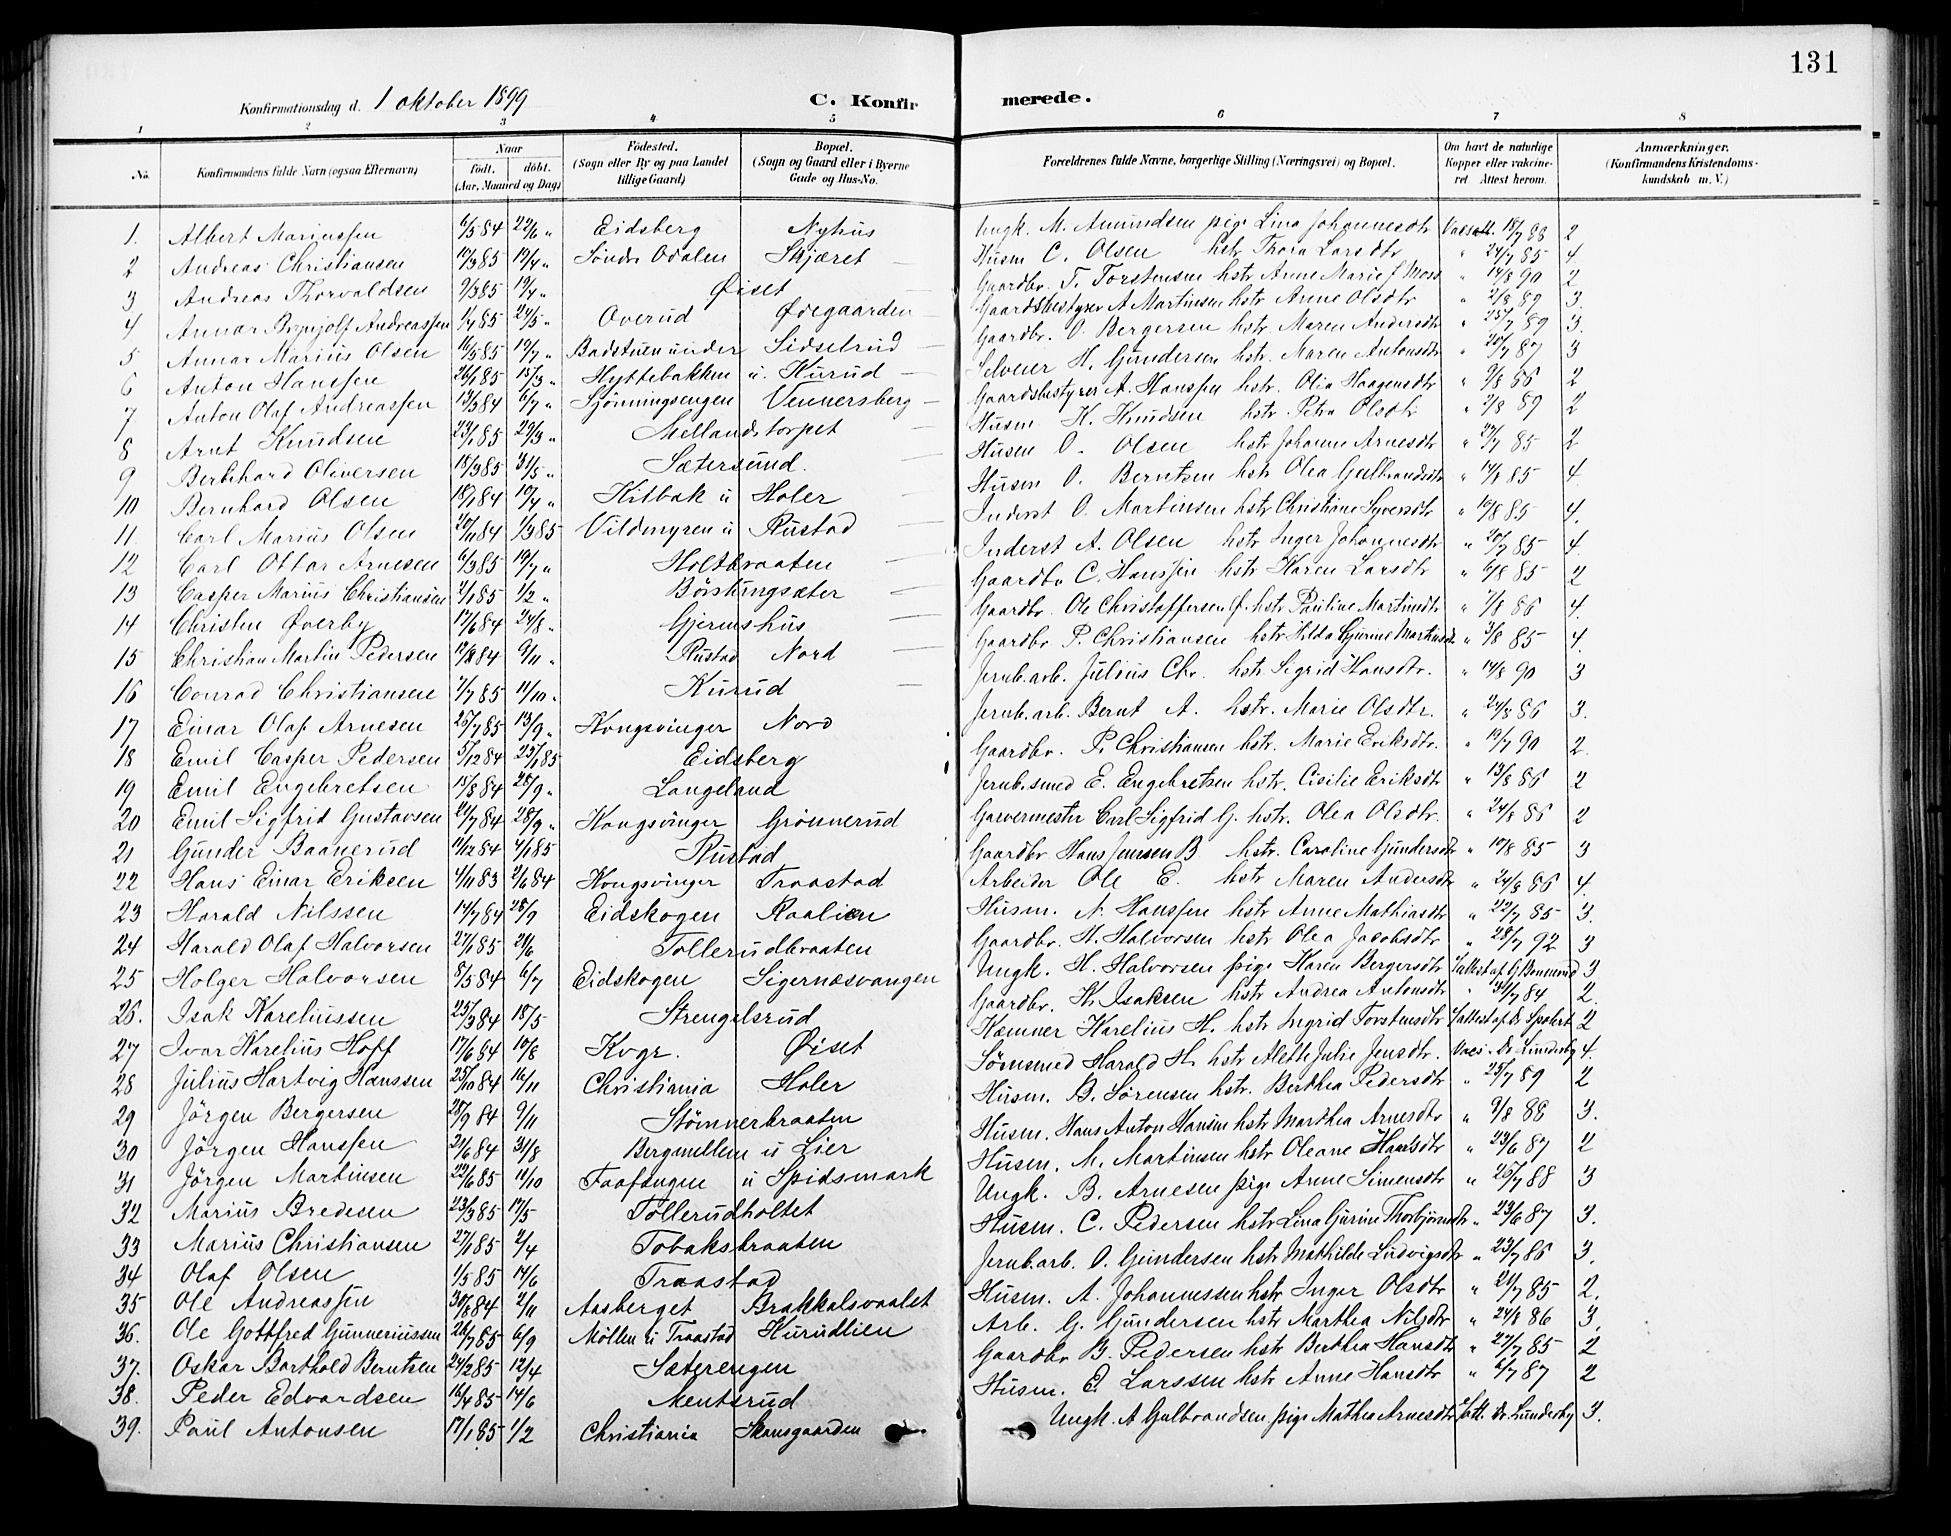 131
Konfirmationsdag d. 1 oktober 1899 C. Konfir merede.
1 2 3 4 5 6 7 8
No. Konfirmandens fulde Navn (ogsaa Efternavn) Naar født. døbt. (Aar, Maaned og Dag) Fødested. (Sogn eller By og paa Landet tillige Gaard) Bopæl. (Sogn og Gaard eller i Byerne Gade og Hus-No. Forældrenes fulde Navne, borgerlige Stilling (Næringsvei) og Bopæl. Om havt de naturlige Kopper eller vakcineret Attest herom. Anmærkninger. (Konfirmandens Kristendomskundskab m. V.)
1. Albert Mariussen 6/5 84 22/6 " Eidsberg Nyhus Ungk. M. Amundsen pige Lina Johannesdtr 18/7 88 2
2 Andreas Christiansen 10/3 85 19/4 " Søndr Odalen Skjæret Husm C. Olsen hstr Thora Larsdtr " 24/7 85 4
3 Andreas Thorvaldsen 9/3 85 19/4 " Øiset Gaardbr. T. Torstensen hstr Anne Marie f Moss " 14/8 90 2
4 Annar Brynjolf Andreassen 1/4 85 24/5 " Overud Ødegaarden Gaardsbestyrer A Martinsen hstr Anne Olsdtr " 2/8 89 3.
5 Annar Marius Olsen 16/5 85 19/7 " Badstuen under Sidselrud Gaardbr. O. Bergersen hstr. Maren Andersdtr " 25/7 89 3.
6 Anton Hanssen 26/1 85 15/3 " Hyttebakken u. Kurud Selveier H. Gundersen hstr. Maren Antonsdtr " 20/7 87 3
7 Anton Olaf Andreassen 13/3 84 6/7 " Sjønningsengen Vennersberg Gaardsbestyrer A. Hanssen hstr. Olia Haagensdtr " 9/8 86 2
8 Arnt Knudsen 23/1 85 29/3 " Mellandstorpet Husm K. Knudsen hstr. Petra Olsdtr " 2/8 89 2
9 Berbhard Oliversen 15/3 85 31/5 " Sætersund. Husm O. Olsen hstr Johanne Arnesdtr " 27/7 85 2
10 Bernhard Olsen 18/1 84 10/4 " Kilbak u Holer Husm O. Berntsen hstr Olea Gulbrandsdtr " 14/8 85 4.
11. Carl Marius Olsen 20/11 84 1/3 85 Vildmyren u Rustad Inderst O. Martinsen hstr Christiane Syversdtr " 10/8 85 4.
12 Carl Ottar Arnesen 6/3 85 19/7 " Holtbraaten Inderst A. Olsen hstr Inger Johannesdtr " 20/7 85 4.
13 Casper Marius Christiansen 4/1 85 1/2 " Børstingsæter Gaardbr C. Hanssen hstr Karen Larsdtr " 6/8 85 2
14 Christen Øverby 17/6 84 24/8 " Gjermshus Gaardbr. Ole Christoffersen Ø. hstr Pauline Martinsdtr " 7/8 86 4.
15 Christian Martin Pedersen 12/8 84 9/11 " Rustad Nord Gaardbr P. Christiansen hstr Hilda Gurine Martinsdtr " 3/8 85 4.
16 Conrad Christiansen 7/7 85 11/10 " Kurud Jernb.arb. Julius Chr. hstr Sigrid Hansdtr. " 14/8 90 3
17 Einar Olaf Arnesen 25/7 85 13/9 " Kongsvinger Nord Jernb.arb. Bernt A. hstr. Marie Olsdtr. " 24/8 86 3.
18 Emil Casper Pedersen 5/12 84 25/1 85 Eidsberg Gaardbr. P. Christiansen hstr. Marie Eriksdtr. " 19/7 90 2.
19 Emil Engebretsen 15/8 84 28/9 " Langeland Jernb.smed E. Engebretsen hstr. Cicilie Eriksdtr " 13/8 86 2
20 Emil Sigfrid Gustavsen 21/7 84 28/9 " Kongsvinger Grønnerud Garvermester Carl Sigfrid G. hstr. Olea Olsdtr. " 24/8 86 2
21 Gunder Baanerud 11/12 84 4/1 85 Rustad Gaardbr Hans Jensen B hstr. Caroline Gundersdtr " 19/8 85 3
22 Hans Einar Eriksen 4/11 83 2/6 84 Kongsvinger Traastad Arbeider Ole E. hstr Maren Andersdtr " 24/8 86 4.
23 Harald Nilssen 14/7 84 28/9 Eidskogen Raalien Husm. N. Hanssen hstr Anne Mathiasdtr " 22/7 85 3.
24 Harald Olaf Halvorsen 27/1 85 21/6 Tollerudbraaten Gaardbr. H. Halvorsen hstr Olea Jacobsdtr " 28/7 92 3
25 Holger Halvorsen 8/5 84 6/7 Eidskogen Sigernæsvangen Ungk. H. Halvorsen pige Karen Bergersdtr 3.
26. Isak Kareliussen 25/3 84 18/5 Strengelsrud Gaardbr. K. Isaksen hstr Andrea Antonsdtr " 31/7 84 2.
27 Ivar Karelius Hoff 17/6 84 10/8 Kvgr. Øiset Kæmner Karelius H. hstr Ingrid Torstensdtr 2
28 Julius Hartvig Hanssen 25/10 84 16/11 Christiania Holer Sømsmed Harald H. hstr Alette Julie Jensdtr. Dr. Lunderby 4.
29 Jørgen Bergersen 28/9 84 9/11 Stømnerbraaten Husm. B. Sørensen hstr. Berthea Pedersdtr " 25/7 89 2
30 Jørgen Hanssen 21/6 84 31/8 Bergmellem u Lier Husm. Hans Anton Hansen hstr Marthea Arnesdtr " 9/8 88 3.
31 Jørgen Martinsen 22/6 85 11/10 Taafengen u Spidsmark Husm. M. Martinsen hstr Oleane Hansdtr " 23/6 87 2
32 Marius Bredesen 23/3 85 17/5 Tollerudholtet Ungk. B. Arnesen pige Anne Simensdtr " 26/7 88 3
33 Marius Christiansen 27/1 85 2/4 Tobaksbraaten Husm. C. Pedersen hstr Lina Gurine Thorbjørnsdtr " 23/6 87 3.
34 Olaf Olsen 1/5 85 14/6 Traastad Jernb.arb. O. Gundersen hstr Mathilde Ludvigsdtr " 23/7 86 3.
35 Ole Andreassen 30/8 84 2/11 Aasberget Brakkalsvaalet Husm. A. Johannessen hstr Inger Olsdtr " 21/7 85 2.
36. Ole Gottfred Gunneriussen 26/7 85 6/9 Møllen u Traastad Kurudlien Arb. G. Gundersen hstr Marthea Nilsdtr " 24/8 86 3.
37. Oskar Barthold Berntsen 24/2 85 12/4 Sæterengen Gaardbr B. Pedersen hstr Berthea Hansdtr " 27/7 85 2
38. Peder Edvardsen 16/4 85 14/6 Mentsrud Husm. E. Larssen hstr Anne Hansdtr " 6/7 87 2
39. Paul Antonsen 17/1 85 1/2 Christiania Skansgaarden Ungk. A Gulbrandsen pige Mathea Arnesdtr Dr. Lunderby 3.